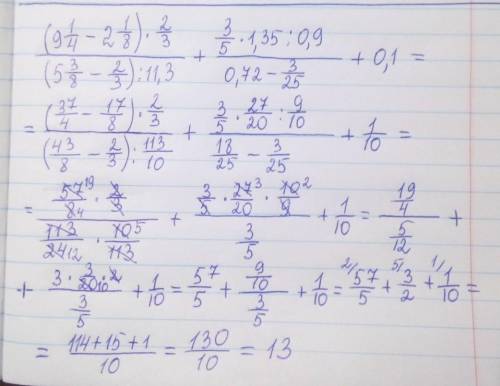 (9 1/4 − 2 1/8) · 2/3 / (5 3/8 − 2/3) : 11,3 + 3/5 · 1,35 : 0,9 / 0,72 − 3/25 + 0,1 =
= (37/4 − 17/8) · 2/3 / (43/8 − 2/3) : 113/10 + 3/5 · 27/20 : 9/10 / 18/25 − 3/25 + 1/10 =
= 57 19/8 4 · 2/3 / 113/24 12 · 10 5/113 + 3/5 · 27 3/20 · 10 2/9 / 3/5 + 1/10 = 19/4 / 5/12 +
+ 3 · 3/20 10 · 2 / 3/5 + 1/10 = 57/5 + 9/10 / 3/5 + 1/10 = 2/ 57/5 + 5/ 3/2 + 1/ 1/10 =
= 114+15+1/10 = 130/10 = 13